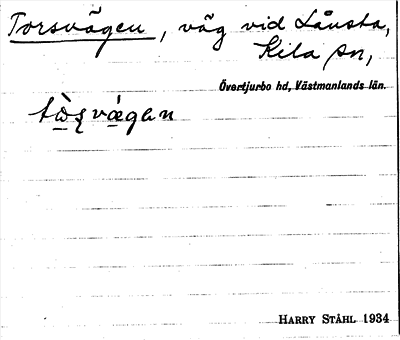 Torsvägen, väg vid Lånsta,
Kila sn,
Övertjurbo hd, Västmanlands län.
tὼ̱ʂvǽ̱gan
HARRY STÅHL 1934